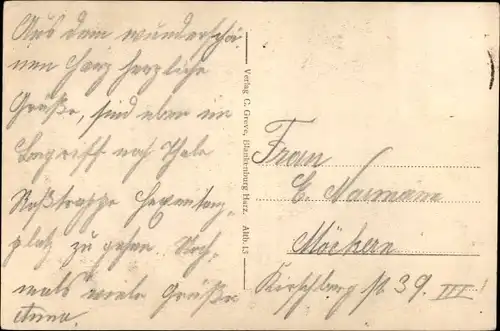 Aus dem wunderschö-
nen Harz herzliche
Grüße, sind eben im
Begriff nach Thale
Roßtrappe Hexentanz-
platz zu gehen. Noch-
mals viele Grüße
Anna.
Verlag C. Greve, Blankenburg Harz. Abtb. 15
Frau
E. Naumann
Möckern
Kirschberg str 39. III!